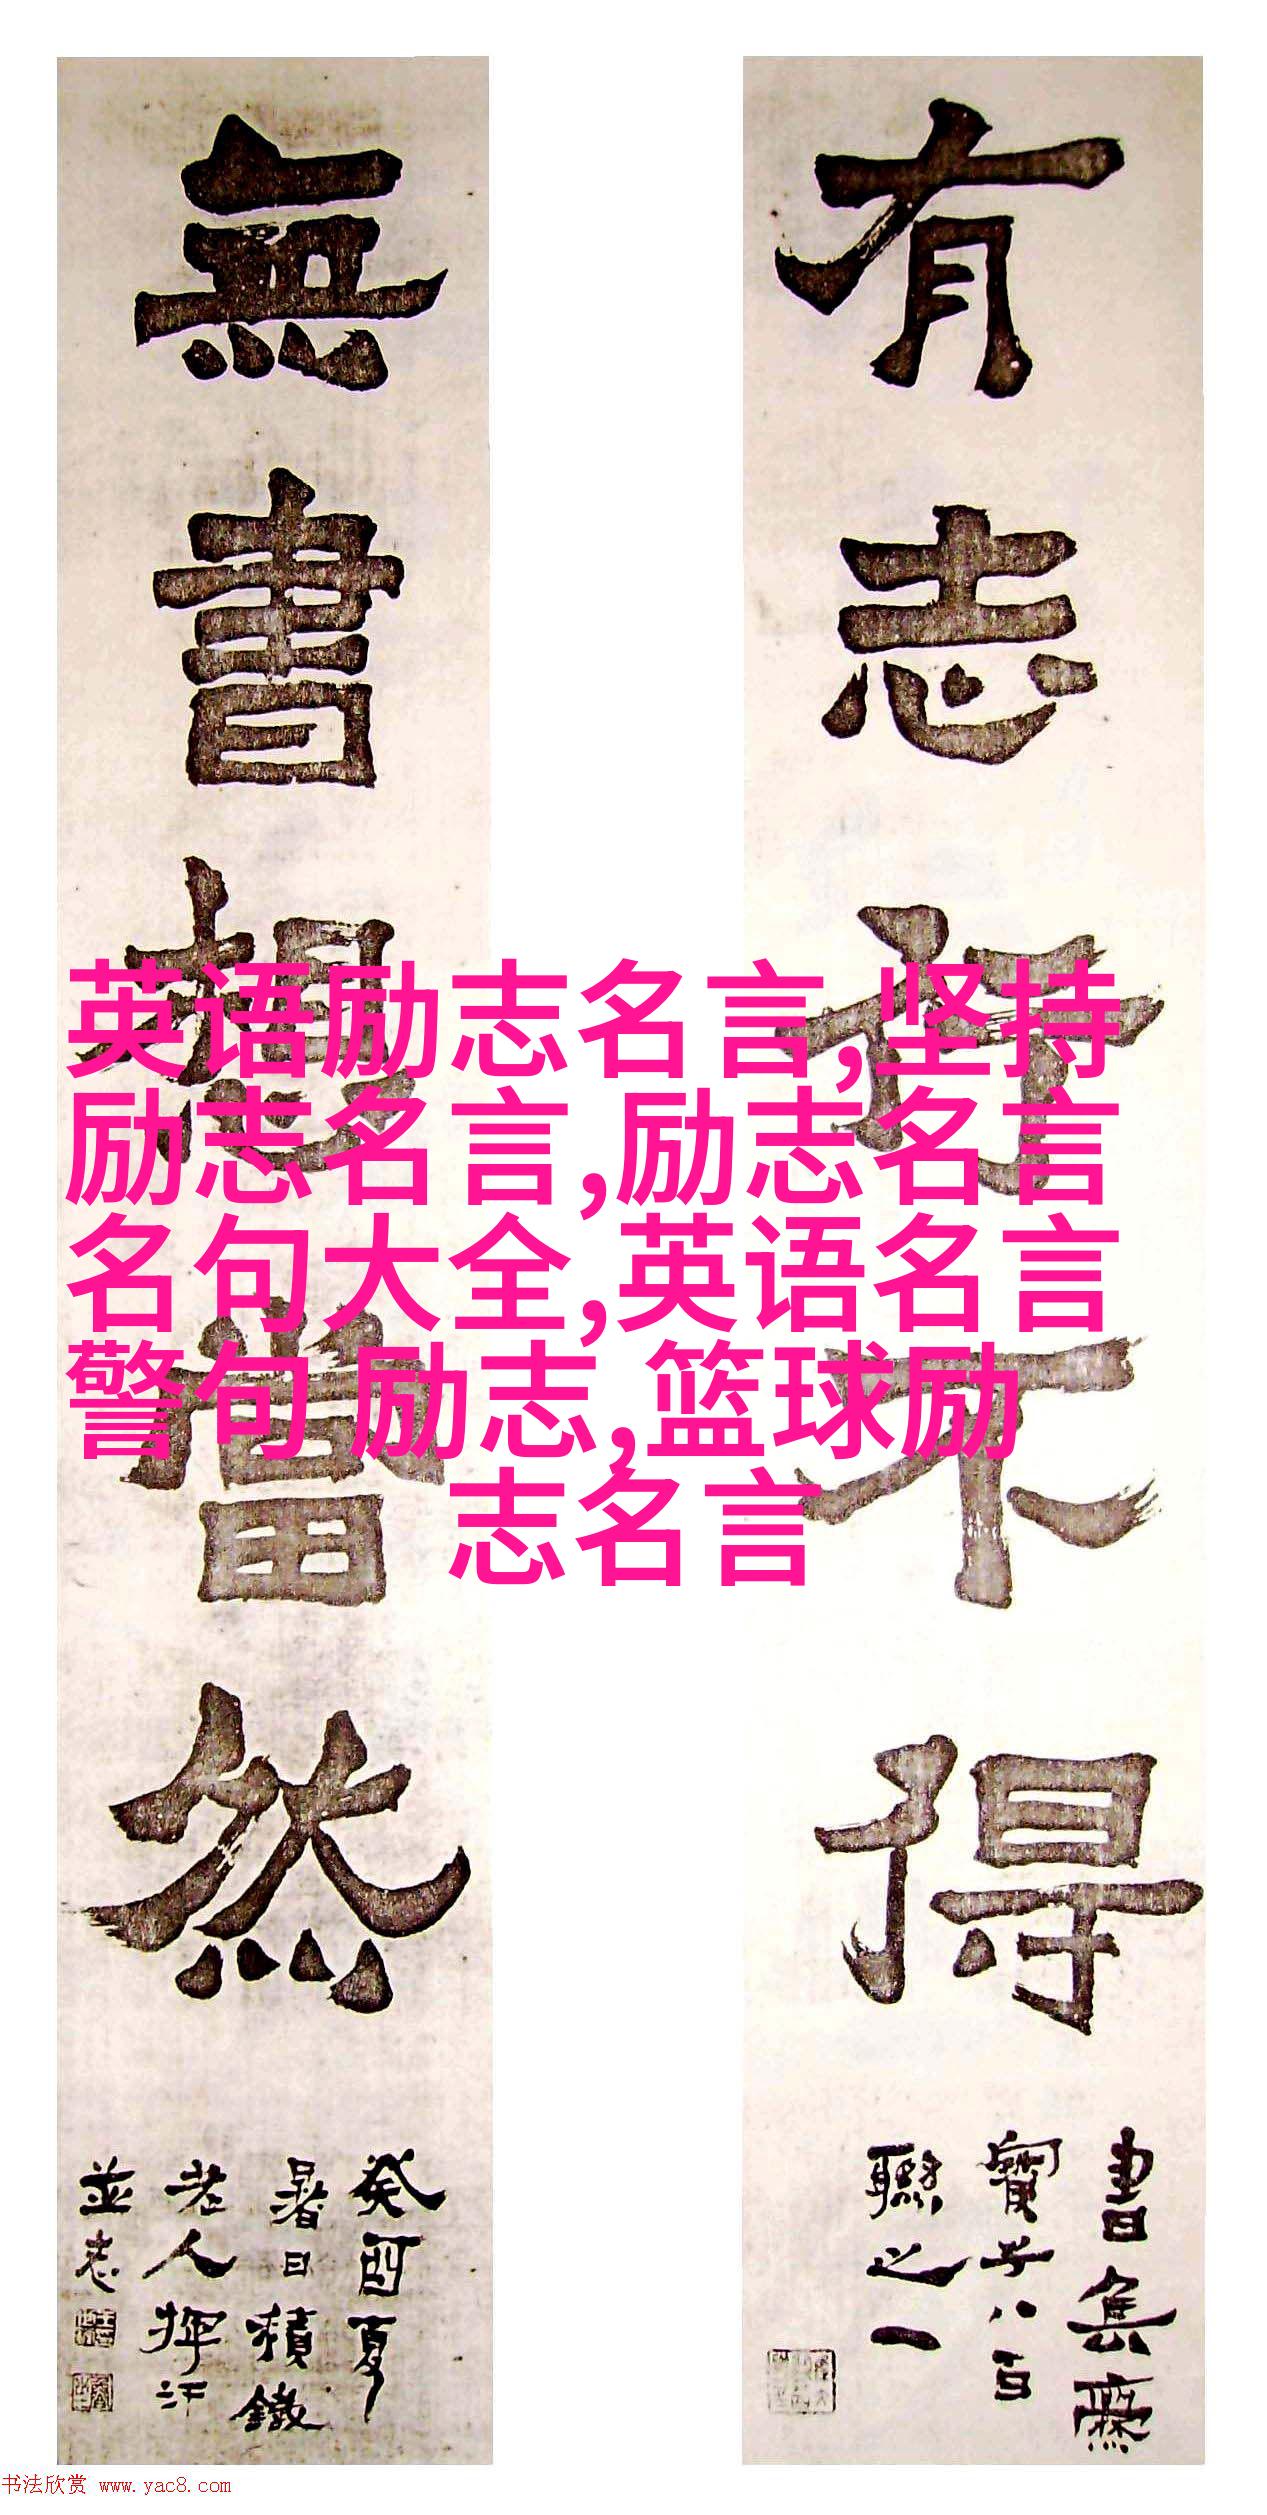 有志何不得
書集齋
寶子八百
聯之一
無書想當然
癸酉夏
暑日積鐵
老人揮汗
並志
英语励志名言,坚持
励志名言,励志名言
名句大全,英语名言
警句 励志,篮球励
志名言
书法欣赏 www.yac8.com